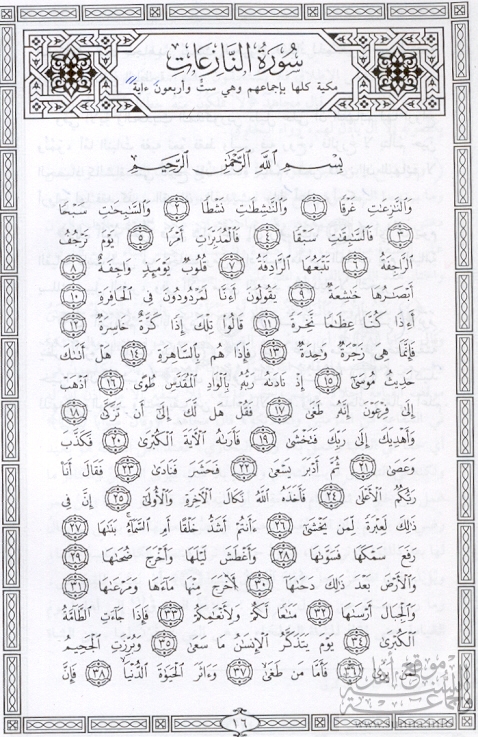 سُورَةُ النَّازِعَاتِ
مكية كلها بإجماعهم وهي ستٌّ وأربعون ءاية
بِسْمِ اللَّهِ الرَّحْمَٰنِ الرَّحِيمِ
وَالنَّازِعَاتِ غَرْقًا ﴿١﴾ وَالنَّاشِطَاتِ نَشْطًا ﴿٢﴾ وَالسَّابِحَاتِ سَبْحًا
﴿٣﴾ فَالسَّابِقَاتِ سَبْقًا ﴿٤﴾ فَالْمُدَبِّرَاتِ أَمْرًا ﴿٥﴾ يَوْمَ تَرْجُفُ
الرَّاجِفَةُ ﴿٦﴾ تَتْبَعُهَا الرَّادِفَةُ ﴿٧﴾ قُلُوبٌ يَوْمَئِذٍ وَاجِفَةٌ ﴿٨﴾
أَبْصَارُهَا خَاشِعَةٌ ﴿٩﴾ يَقُولُونَ أَءِنَّا لَمَرْدُودُونَ فِي الْحَافِرَةِ ﴿١٠﴾
أَءِذَا كُنَّا عِظَامًا نَّخِرَةً ﴿١١﴾ قَالُوا تِلْكَ إِذًا كَرَّةٌ خَاسِرَةٌ ﴿١٢﴾
فَإِنَّمَا هِيَ زَجْرَةٌ وَاحِدَةٌ ﴿١٣﴾ فَإِذَا هُم بِالسَّاهِرَةِ ﴿١٤﴾ هَلْ أَتَاكَ
حَدِيثُ مُوسَى ﴿١٥﴾ إِذْ نَادَاهُ رَبُّهُ بِالْوَادِ الْمُقَدَّسِ طُوًى ﴿١٦﴾ اذْهَبْ
إِلَى فِرْعَوْنَ إِنَّهُ طَغَى ﴿١٧﴾ فَقُلْ هَل لَّكَ إِلَى أَن تَزَكَّى ﴿١٨﴾
وَأَهْدِيَكَ إِلَى رَبِّكَ فَتَخْشَى ﴿١٩﴾ فَأَرَاهُ الْآيَةَ الْكُبْرَى ﴿٢٠﴾ فَكَذَّبَ
وَعَصَى ﴿٢١﴾ ثُمَّ أَدْبَرَ يَسْعَى ﴿٢٢﴾ فَحَشَرَ فَنَادَى ﴿٢٣﴾ فَقَالَ أَنَا
رَبُّكُمُ الْأَعْلَى ﴿٢٤﴾ فَأَخَذَهُ اللَّهُ نَكَالَ الْآخِرَةِ وَالْأُولَى ﴿٢٥﴾ إِنَّ فِي
ذَلِكَ لَعِبْرَةً لِّمَن يَخْشَى ﴿٢٦﴾ ءَأَنتُمْ أَشَدُّ خَلْقًا أَمِ السَّمَاءُ بَنَاهَا ﴿٢٧﴾
رَفَعَ سَمْكَهَا فَسَوَّاهَا ﴿٢٨﴾ وَأَغْطَشَ لَيْلَهَا وَأَخْرَجَ ضُحَاهَا ﴿٢٩﴾
وَالْأَرْضَ بَعْدَ ذَلِكَ دَحَاهَا ﴿٣٠﴾ أَخْرَجَ مِنْهَا مَاءَهَا وَمَرْعَاهَا ﴿٣١﴾
وَالْجِبَالَ أَرْسَاهَا ﴿٣٢﴾ مَتَاعًا لَّكُمْ وَلِأَنْعَامِكُمْ ﴿٣٣﴾ فَإِذَا جَاءَتِ الطَّامَّةُ
الْكُبْرَى ﴿٣٤﴾ يَوْمَ يَتَذَكَّرُ الْإِنسَانُ مَا سَعَى ﴿٣٥﴾ وَبُرِّزَتِ الْجَحِيمُ
لِمَن يَرَى ﴿٣٦﴾ فَأَمَّا مَن طَغَى ﴿٣٧﴾ وَءَاثَرَ الْحَيَاةَ الدُّنْيَا ﴿٣٨﴾ فَإِنَّ
١٦